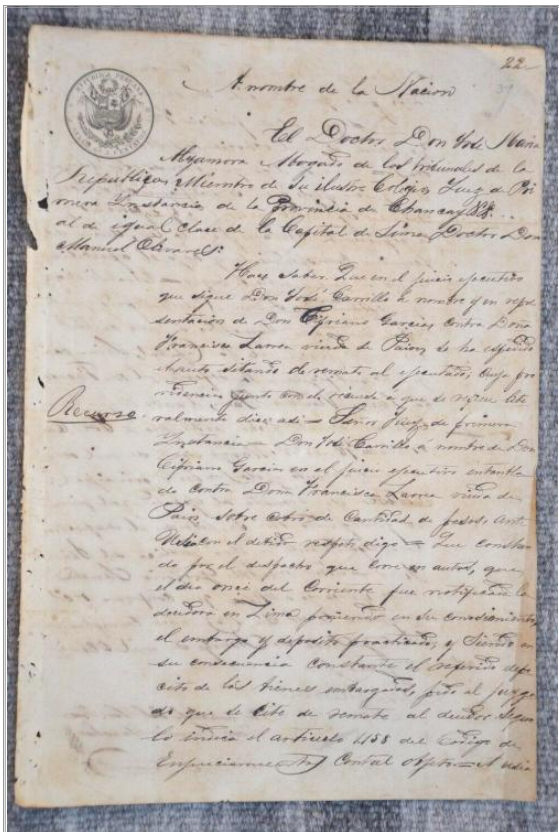 22
A nombre de la Nacion
El Doctor Don José Maria
Abogado de los tribunales de la
Republica, Miembro de su ilustre Colegio, Juez de Pri
mera Instancia de la Provincia de Chancay
al de igual clase de la Capital de Lima Doctor Don
Manuel
Hace saber Que en el juicio ejecutivo
que sigue Don José Carrillo a nombre y en repre
sentacion de Don Cipriano Garcia, contra Doña
Francisca Larrea viuda de se ha espedido
citando de remate al ejecutado, cuya pro
videncia junto con el á que se
Recurso
ralmente dice asi - Señor Juez de primera
Instancia - Don José Carrillo á nombre de Don
Cipriano Garcia en el juicio ejecutivo
do contra Doña Francisca Larrea viuda de
sobre cobro de Cantidad de pesos, ante
con el debido respeto digo - Que constan
do por el despacho que corre en autos, que
el dia once del Corriente fue notificada la
deudora en Lima poniendo en su conocimiento
el embargo y deposito practicado, y siendo en
su consecuencia constante el referido depo
cito de los bienes embargados, pido al juzga
do que se cite de remate al deudor segun
lo indica el articulo 1158 del Codigo de
Enjuiciamientos